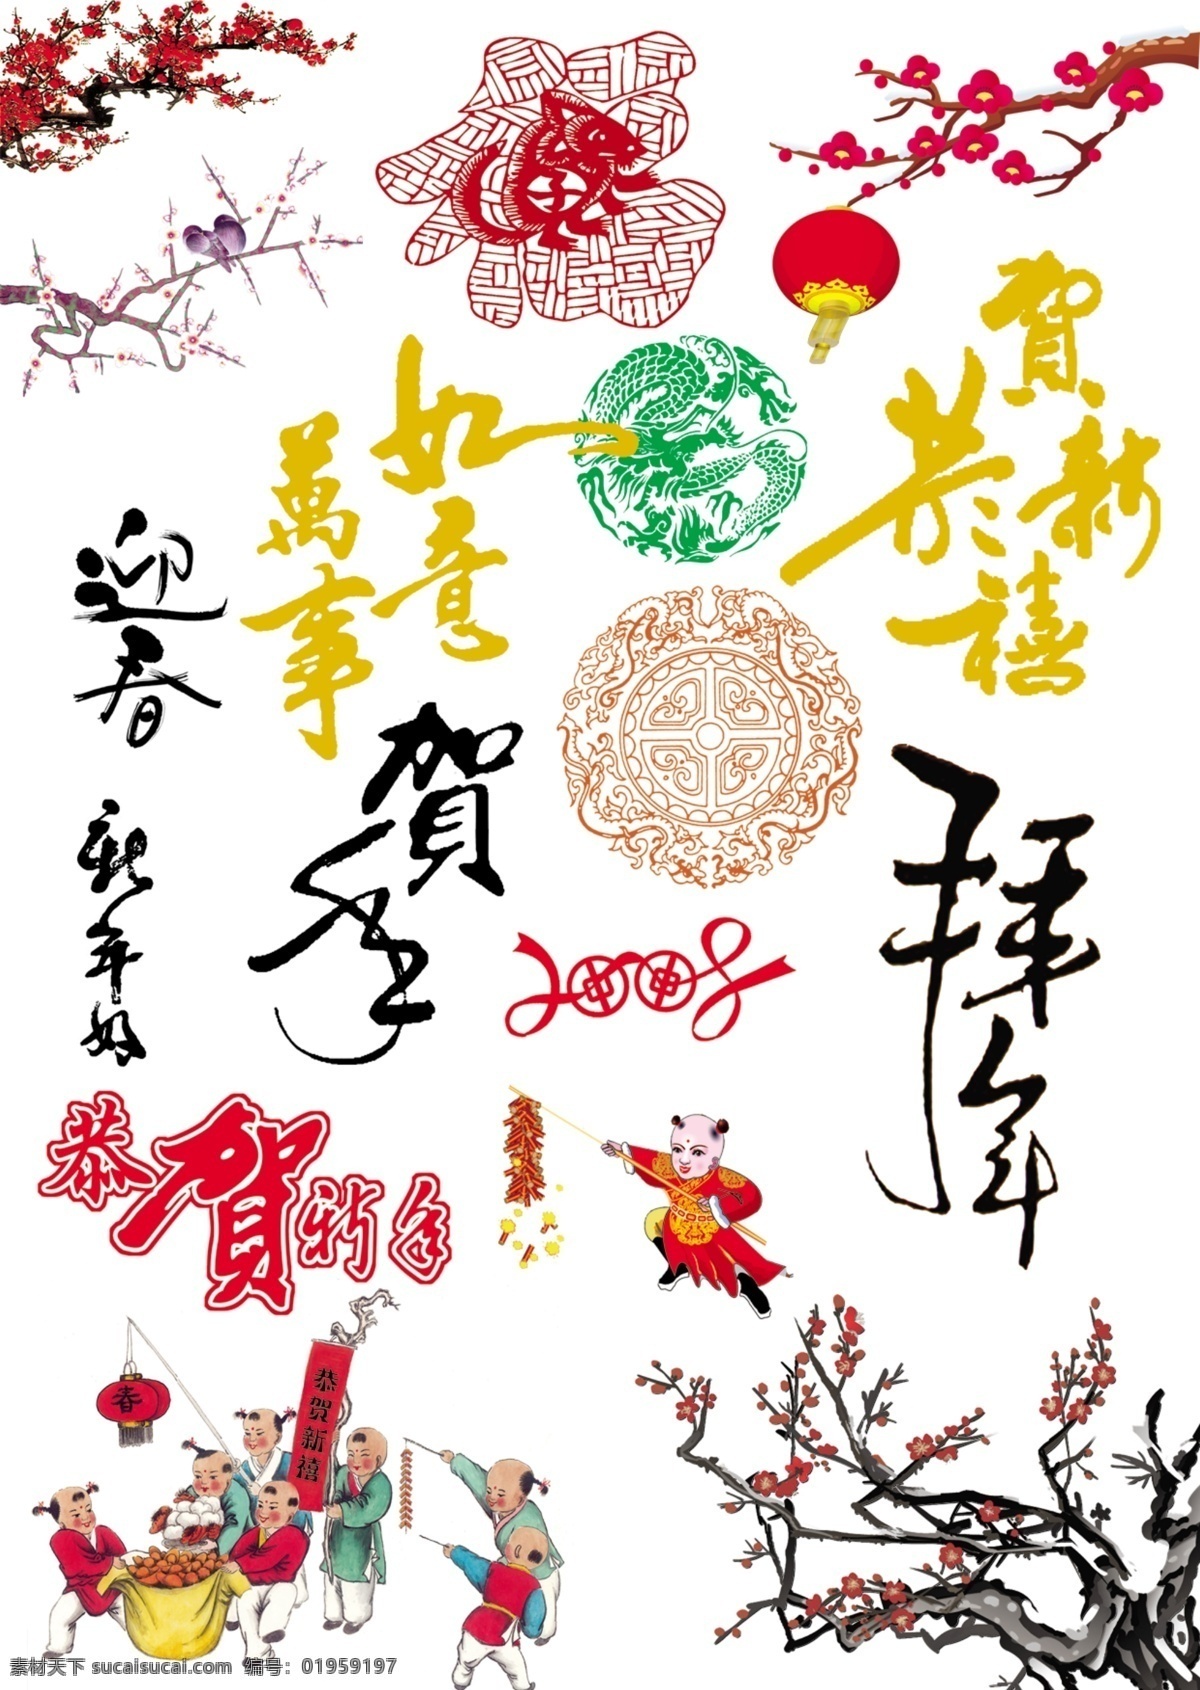 子
恭賀新禧
萬事如意
迎春
賀年
新年好
拜年
2008
恭賀新年
春
恭賀新禧
素材天下 sucaisucai.com 编号：01959197